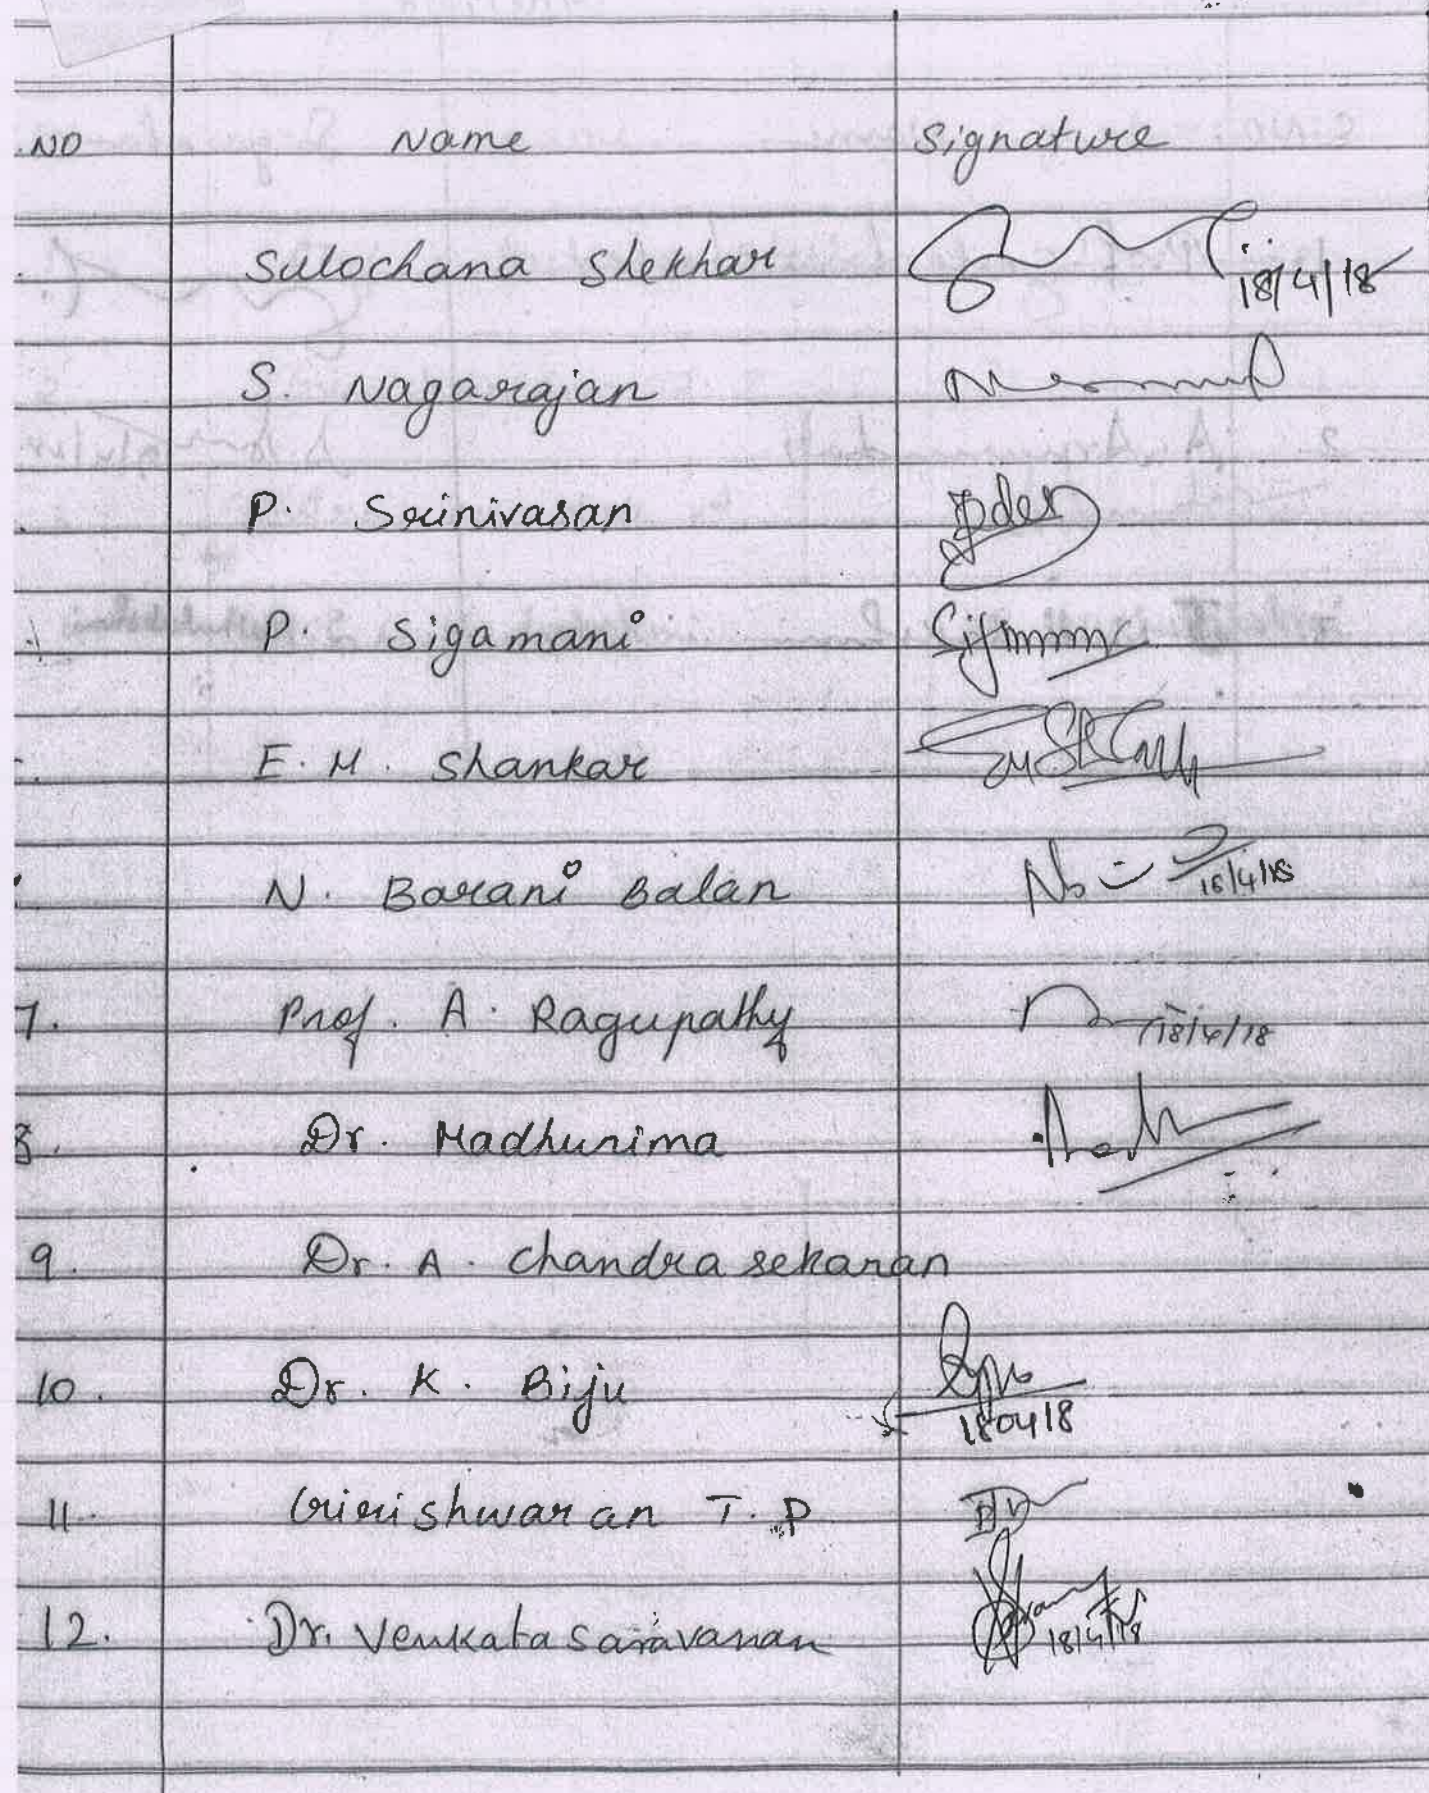 NO Name Signature
Sulochana Shekhar 18/4/18
S. Nagarajan
P. Srinivasan
P. Sigamani
E. M. Shankar
N. Barani Balan 18/4/18
7. Prof. A. Ragupathy 18/4/18
8. Dr. Madhurima
9. Dr. A. Chandrasekaran
10. Dr. K. Biju 180418
11. Gririshwaran T. P
12. Dr. Venkata Saravanan 18/4/18